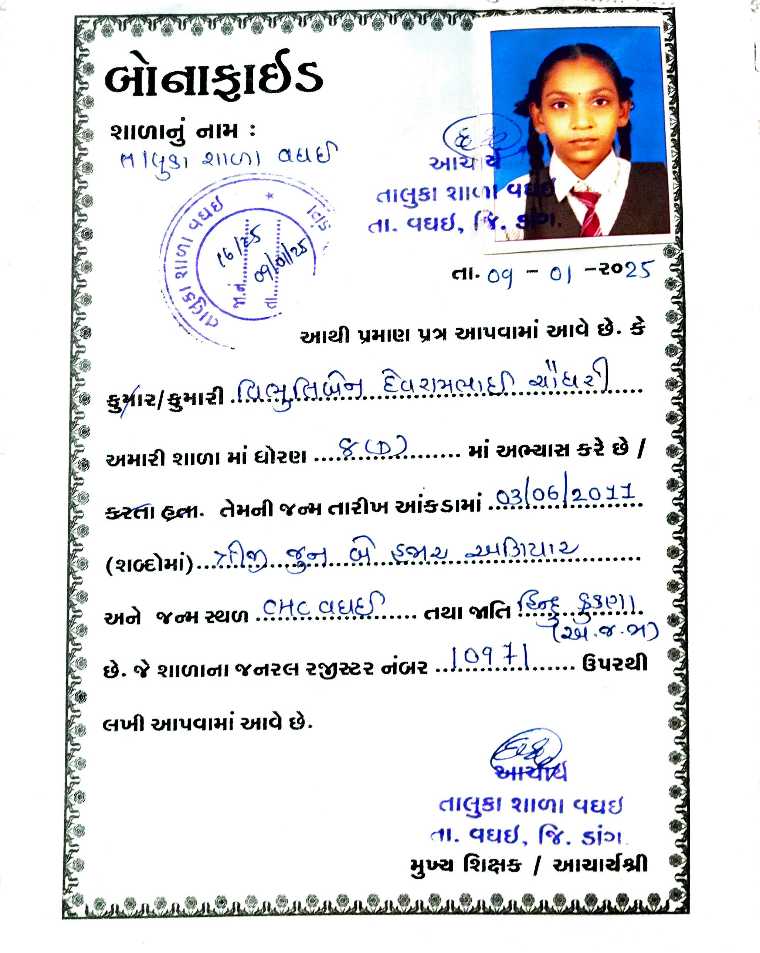 બોનાફાઈડ
શાળાનું નામ :
તાલુકા શાળા વઘઈ
આચાર્ય
તાલુકા શાળા વઘઈ
તા. વઘઇ, જિ. ડાંગ.
તાલુકા શાળા વઘઇ * ડાંગ
જા.નં. 16/25
તા. 09/01/25
તા. 09 - 01 -૨૦25
આથી પ્રમાણ પત્ર આપવામાં આવે છે. કે
કુમાર/કુમારી વિભુતિબેન દેવરામભાઈ ચૌધરી
અમારી શાળા માં ધોરણ ....8 (D)......... માં અભ્યાસ કરે છે /
કરતા હતા. તેમની જન્મ તારીખ આંકડામાં 03/06/2011
(શબ્દોમાં)...ત્રીજી જુન બે હજાર અગિયાર
અને જન્મ સ્થળ CHC વઘઈ ...... તથા જાતિ હિન્દુ કુકણા
(અ.જ.જા)
છે. જે શાળાના જનરલ રજીસ્ટર નંબર ...10971...... ઉપરથી
લખી આપવામાં આવે છે.
આચાર્ય
તાલુકા શાળા વઘઇ
તા. વઘઇ, જિ. ડાંગ.
મુખ્ય શિક્ષક / આચાર્યશ્રી